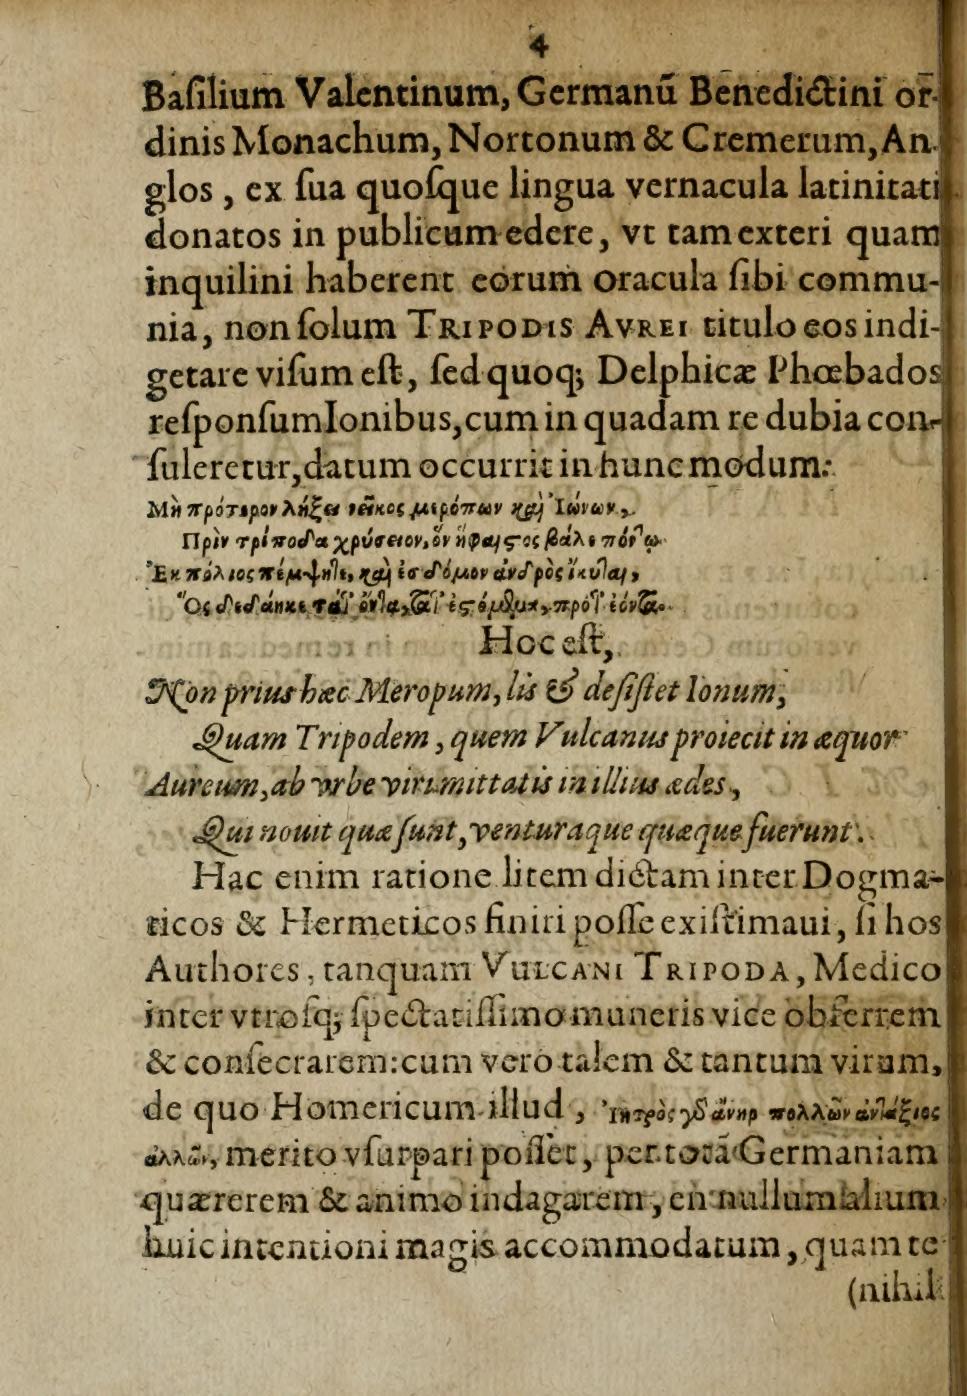 4
Baſilium Valentinum, Germanũ Benedictini or-
dinis Monachum, Nortonum & Cremerum, An-
glos, ex ſua quoſque lingua vernacula latinitati
donatos in publicum edere, vt tam exteri quam
inquilini haberent eorum oracula ſibi commu-
nia, non ſolum TRIPODIS AVREI titulo eos indi-
getare viſum eſt, ſed quoq; Delphicæ Phœbados
reſponſum Ionibus, cum in quadam re dubia con-
ſuleretur, datum occurrit in hunc modum:
Μὴ πρότερον λήξει νεῖκος μερόπων καὶ Ἰώνων,
Πρὶν τρίποδα χρύσειον, ὃν ἥφαιστος βάλε πόντῳ
Ἐκ πόλιος πέμψητε, καὶ ἐς δόμον ἀνδρὸς ἵκηται,
Ὃς δεδάηκε τά τ' ὄντα, τά τ' ἐσσόμενα, πρό τ' ἐόντα.
Hoc eſt,
Non prius hæc Meropum, lis & deſiſtet Ionum,
Quam Tripodem, quem Vulcanus proiecit in æquor
Aureum, ab vrbe viri mittatis in illius ædes,
Qui nouit quæ ſunt, ventura que quæque fuerunt.
Hac enim ratione litem dictam inter Dogma-
ticos & Hermeticos finiri poſſe exiſtimaui, ſi hos
Authores, tanquam VULCANI TRIPODA, Medico
inter vtroſq; ſpectatiſſimo muneris vice obferrem
& conſecrarem: cum vero talem & tantum virum,
de quo Homericum illud, Ἰητρὸς γὰρ ἀνὴρ πολλῶν ἀντάξιος
ἄλλων, merito vſurpari poſſet, per totã Germaniam
quærerem & animo indagarem, en nullum alium
huic intentioni magis accommodatum, quam te
(nihil